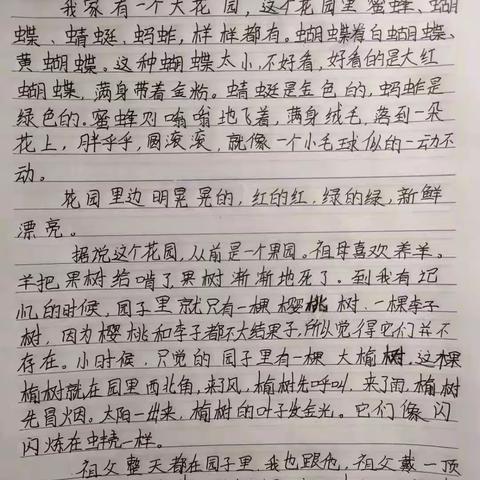 我家有一个大花园，这个花园里蜜蜂、蝴
蝶、蜻蜓、蚂蚱，样样都有。蝴蝶有白蝴蝶、
黄蝴蝶。这种蝴蝶太小，不好看，好看的是大红
蝴蝶，满身带着金粉。蜻蜓是金色的，蚂蚱是
绿色的。蜜蜂则嗡嗡地飞着，满身绒毛，落到一朵
花上，胖乎乎，圆滚滚，就像一个小毛球似的一动不
动。
花园里边明晃晃的，红的红，绿的绿，新鲜
漂亮。
据说这个花园，从前是一个果园。祖母喜欢养羊。
羊把果树给啃了果树渐渐地死了。到我有记
忆的时候，园子里就只有一棵樱桃树，一棵李子
树，因为樱桃和李子都不大结果子，所以觉得它们并不
存在。小时候，只觉的园子里有一棵大榆树，这棵
榆树就在园里西北角，来了风，榆树先呼叫，来了雨，榆树
先冒烟。太阳一出来，榆树的叶子发金光。它们像闪
闪烁在蚌壳一样。
祖父整天都在园子里，我也跟他，祖父戴一顶